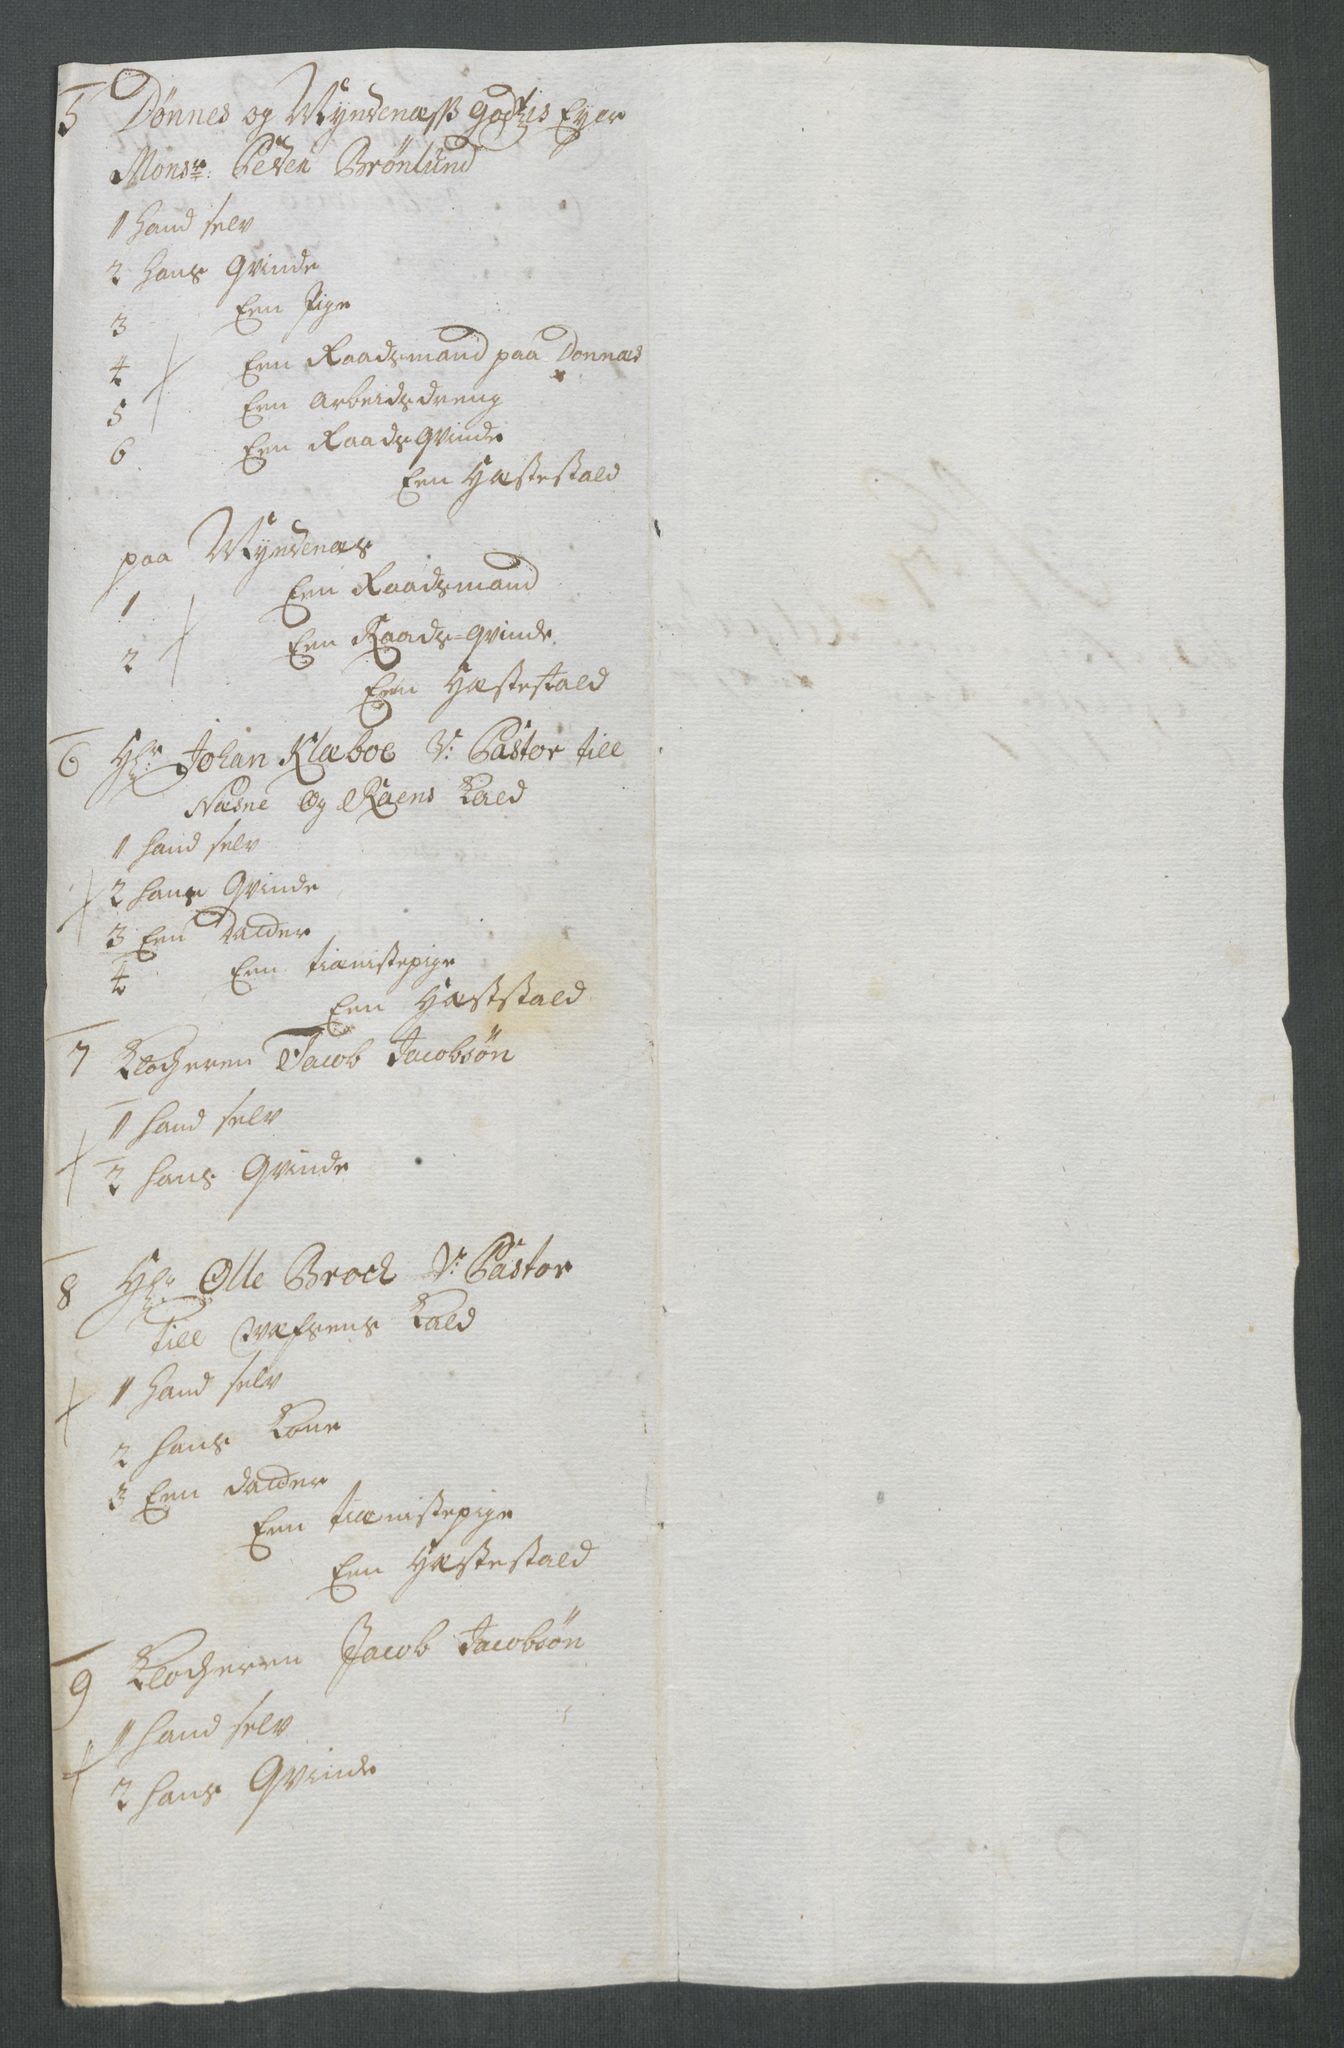 5 Dønnes og Myndenæss godtzes Eyer
Monsr: Peder Brønlund
1 hand selv
2 hans Qvinde
3 Een Pige
4 Een Raadsmand paa Donnæs
5 Een Arbeidsdreng
6 Een Raads Qvinde
Een Hæstestald
paa Myndenæs
1 Een Raadsmand
2 Een Raads=Qvinde
Een Hæstestald
6 Hr: Johan Klæboe V: Pastor till
Næsne Og Raens Kald
1 hand selv
2 hans Qvinde
3 Een Datter
4 Een tienistepige
Een Hæststald
7 Klocheren Jacob Jacobsøn
1 hand selv
2 hans Qvinde
8 Hr. Olle Brock V: Pastor
till Wefsens Kald
1 hand selv
2 hans Kone
3 Een datter
Een tienistepige
Een Hæstestald
9 Klocheren Jacob Jacobsøn
1 hand selv
2 hans Qvinde